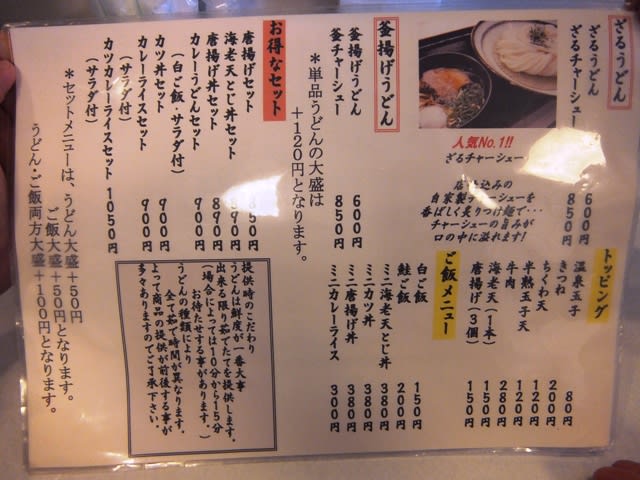 ざるうどん
ざるうどん 600円
ざるチャーシュー 850円
人気No.1!!
ざるチャーシュー
込みの
自家製チャーシューを
香ばしく炙りつけ麺で・・・
チャーシューの旨みが
口の中に溢れます!
釜揚げうどん
釜揚げうどん 600円
釜チャーシュー 850円
*単品うどんの大盛は
+120円となります。
お得なセット
唐揚げセット 850円
海老天とじ丼セット 890円
唐揚げ丼セット 890円
カレーうどんセット 900円
(白ご飯・サラダ付)
カツ丼セット 900円
カレーライスセット 900円
(サラダ付)
カツカレーライスセット 1050円
(サラダ付)
*セットメニューは、うどん大盛+50円
ご飯大盛+50円となります。
うどん・ご飯両方大盛+100円となります。
トッピング
温泉玉子 80円
きつね 200円
ちくわ天 120円
半熟玉子天 120円
牛肉 280円
海老天(1本) 150円
唐揚げ(3個) 150円
ご飯メニュー
白ご飯 150円
鮭ご飯 200円
ミニ海老天とじ丼 380円
ミニカツ丼 380円
ミニ唐揚げ丼 380円
ミニカレーライス 300円
提供時のこだわり
うどんは鮮度が一番大事
出来る限り茹でたてを提供します。
(場合によっては10分から15分
お待たせする事があります。)
うどんの種類により
全て茹で時間が異なります。
よって商品の提供が前後する事が
多々ありますのでご了承下さい。